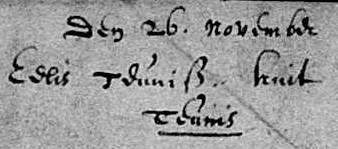 Den 26. November
Eelis Teuniß. kint
Teunis